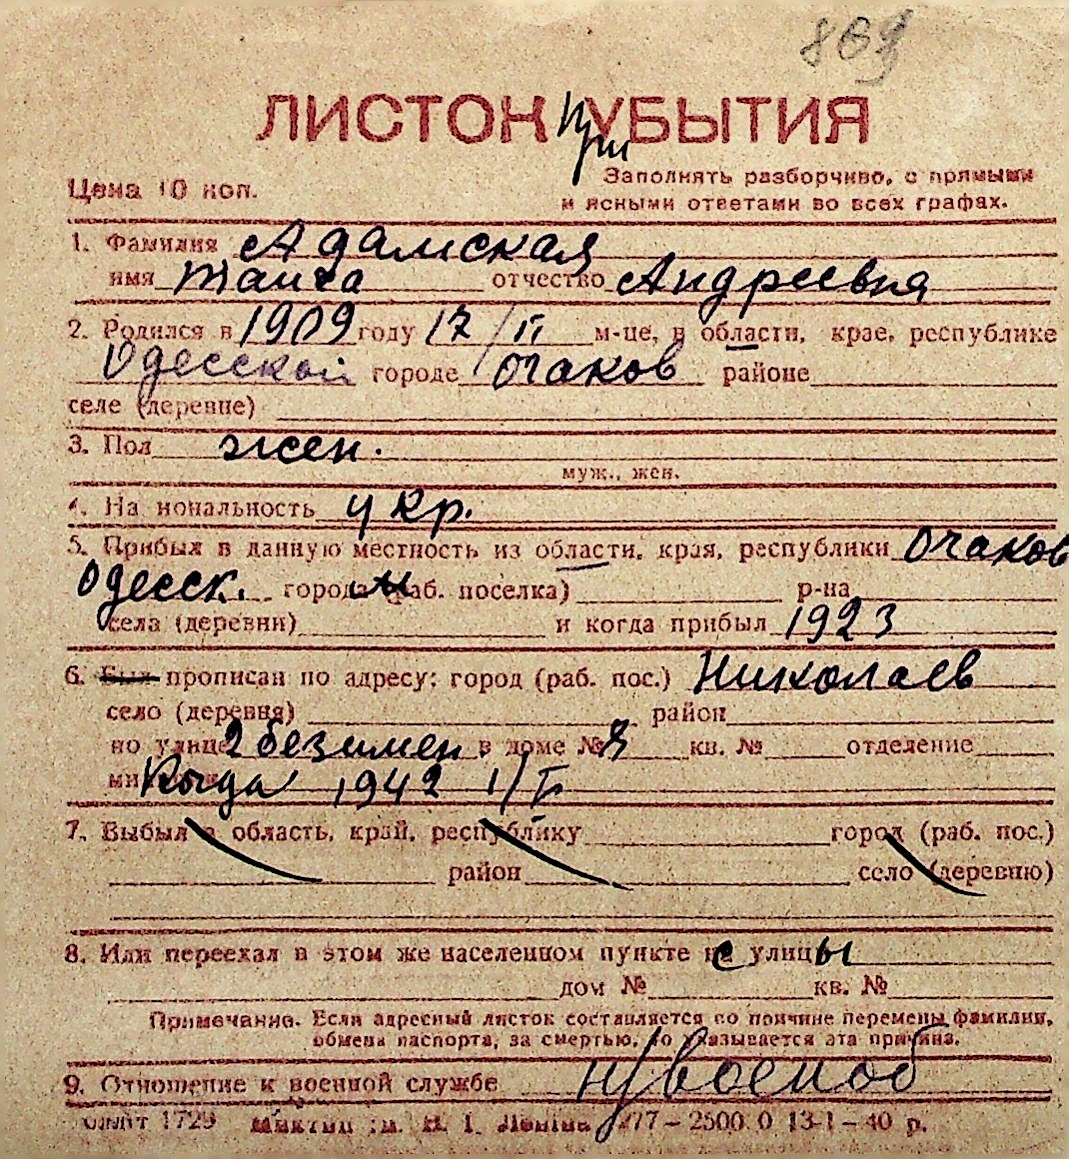 869
ЛИСТОК при УБЫТИЯ
Цена 10 коп.
Заполнять разборчиво, с прямыми
и ясными ответами во всех графах.
1. Фамилия Адамская
имя Таиса отчество Андреевна
2. Родился в 1909 году 17/II м-це, в области, крае, республике
Одесской городе Очаков районе
селе (деревне)
3. Пол жен.
муж., жен.
4. На иональность укр.
5. Прибыл в данную местность из области, края, республики Очаков
Одесск. города (раб. поселка) р-на
села (деревни) и когда прибыл 1923
6. Был прописан по адресу: город (раб. пос.) Николаев
село (деревня) район
по улице 2 безимен в доме № 7 кв. № отделение
Когда 1942 1/I
7. Выбыл в область, край, республику город (раб. пос.)
район село (деревню)
8. Или переехал в этом же населенном пункте с улицы
дом № кв. №
Примечание. Если адресный листок составляется по причине перемены фамилии,
обмена паспорта, за смертью, то указывается эта причина.
9. Отношение к военной службе н/военоб
1729 Ленина 277 – 2500 0 13-1 – 40 р.